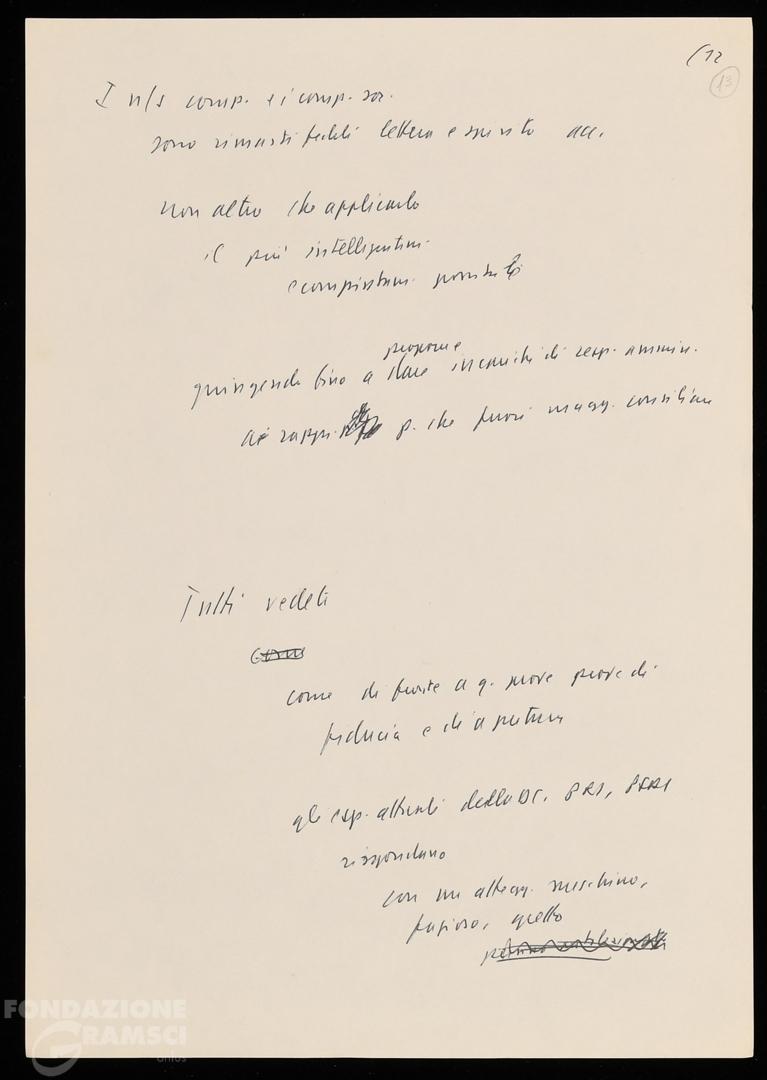 (12
13
I n/s comp. e i comp. soc.
sono rimasti fedeli lettera e spirito acc.
non altro che applicarlo
il più intelligentem.
e compiutam. possibile
proporre
giungendo fino a dare incarichi di resp. ammin.
ai rappr. p. che fuori magg. consiliare
Tutti vedete
come di fronte a q. nuove prove di
fiducia e di apertura
gli esp. attuali della DC, PRI, PSDI
rispondano
con un attegg. meschino,
furioso, gretto
FONDAZIONE
GRAMSCI
onlus